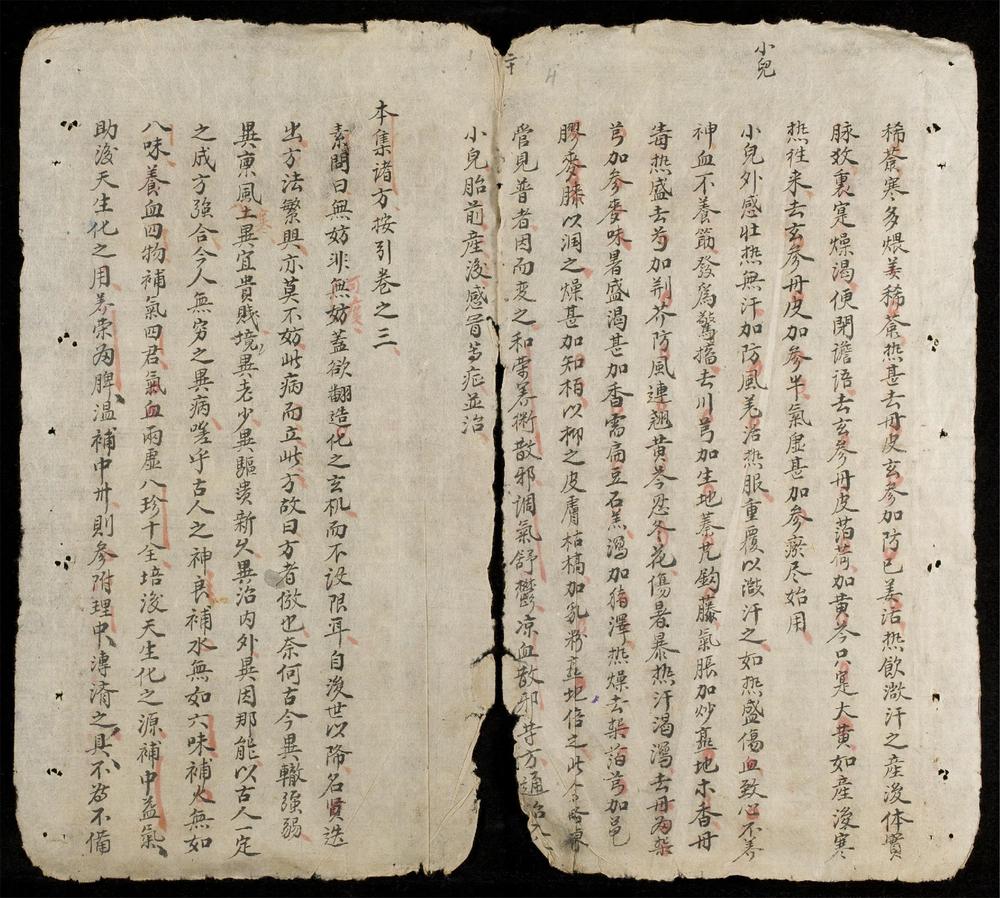 小兒
稀薟寒多煨姜稀薟热甚去丹皮玄參加防已羌活热飲溦汗之產後体實
脉数裏寔燥渴便閉譫語去玄參丹皮萡荷加黄芩只寔大黄如產後寒
热往来去玄參丹皮加參半氣虚甚加參瘀尽始用
小兒外感壮热無汗加防風羌活热服重覆以溦汗之如热盛傷血致心不养
神血不養筋發為驚搐去川芎加生地蓁艽鈎藤氣脹加炒熟地木香丹
毒热盛去芎加荆芥防風連翹黄芩忍冬花傷暑暴热汗渴瀉去丹
芎加參麥味暑盛渴甚加香需扁豆石羔瀉加猪澤热燥去柴萡芎加
膠麥膝以润之燥甚加知栢以抑之皮膚枯槁加乳熟地倍之此
管見普者因而变之和荣养衛散邪調氣舒鬱凉血散邪等方通治
小兒胎前産後感冒等症並治
本集诸方按引卷之三
素問曰無妨非無妨蓋欲翻造化之玄机而不设限耳自後世以降名賢迭
出方法繁興亦莫不妨此病而立此方故曰方者倣也奈何古今異轍强弱
異禀風土異宜貴賤境異老少異軀貴新久異治内外異因那能以古人一定
之成方強合今人無穷之異病嗟乎古人之神良補水無如六味補火無如
八味養血四物補氣四君氣血兩虚八珍十全培後天生化之源補中益氣
助後天生化之用养荣為脾温補中州則參附理中溥济之具不為不備